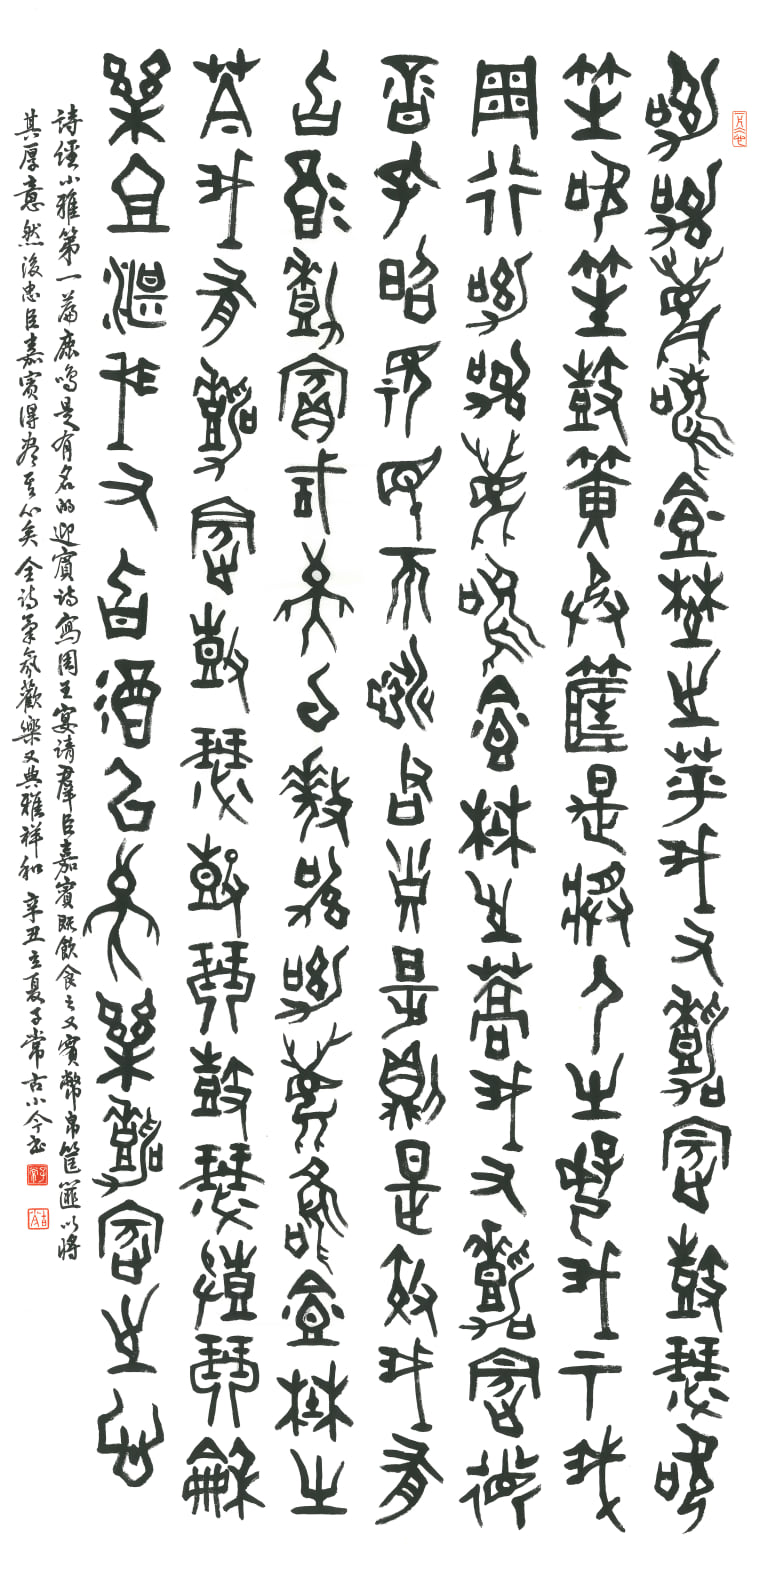 呦呦鹿鳴食野之苹我有嘉賓鼓瑟吹
笙吹笙鼓簧承筐是將人之好我示我
周行呦呦鹿鳴食野之蒿我有嘉賓德
音孔昭視民不恌君子是則是傚我有
旨酒嘉賓式燕以敖呦呦鹿鳴食野之
芩我有嘉賓鼓瑟鼓琴鼓瑟鼓琴和
樂且湛我有旨酒以燕樂嘉賓之心
詩經小雅第一篇鹿鳴是有名的迎賓詩寫周王宴請群臣嘉賓既飲食之又實幣帛筐篚以將
其厚意然後忠臣嘉賓得盡其心矣全詩氣氛歡樂又典雅祥和 辛丑立夏子常古小今書